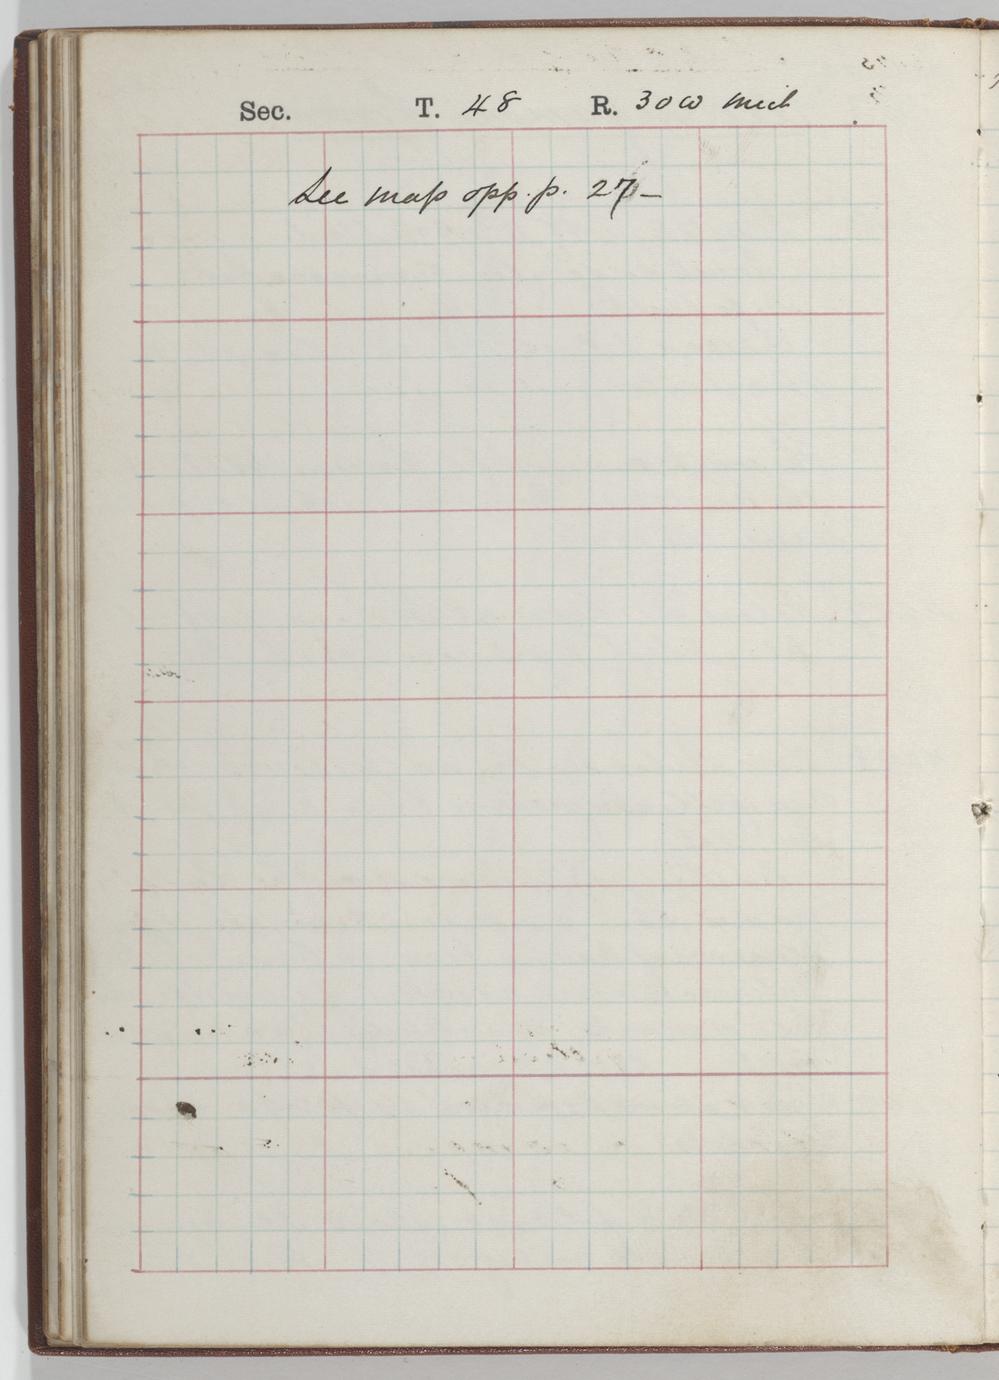 Sec. T. 48 R. 30 W Mich
See map opp. p. 27 –